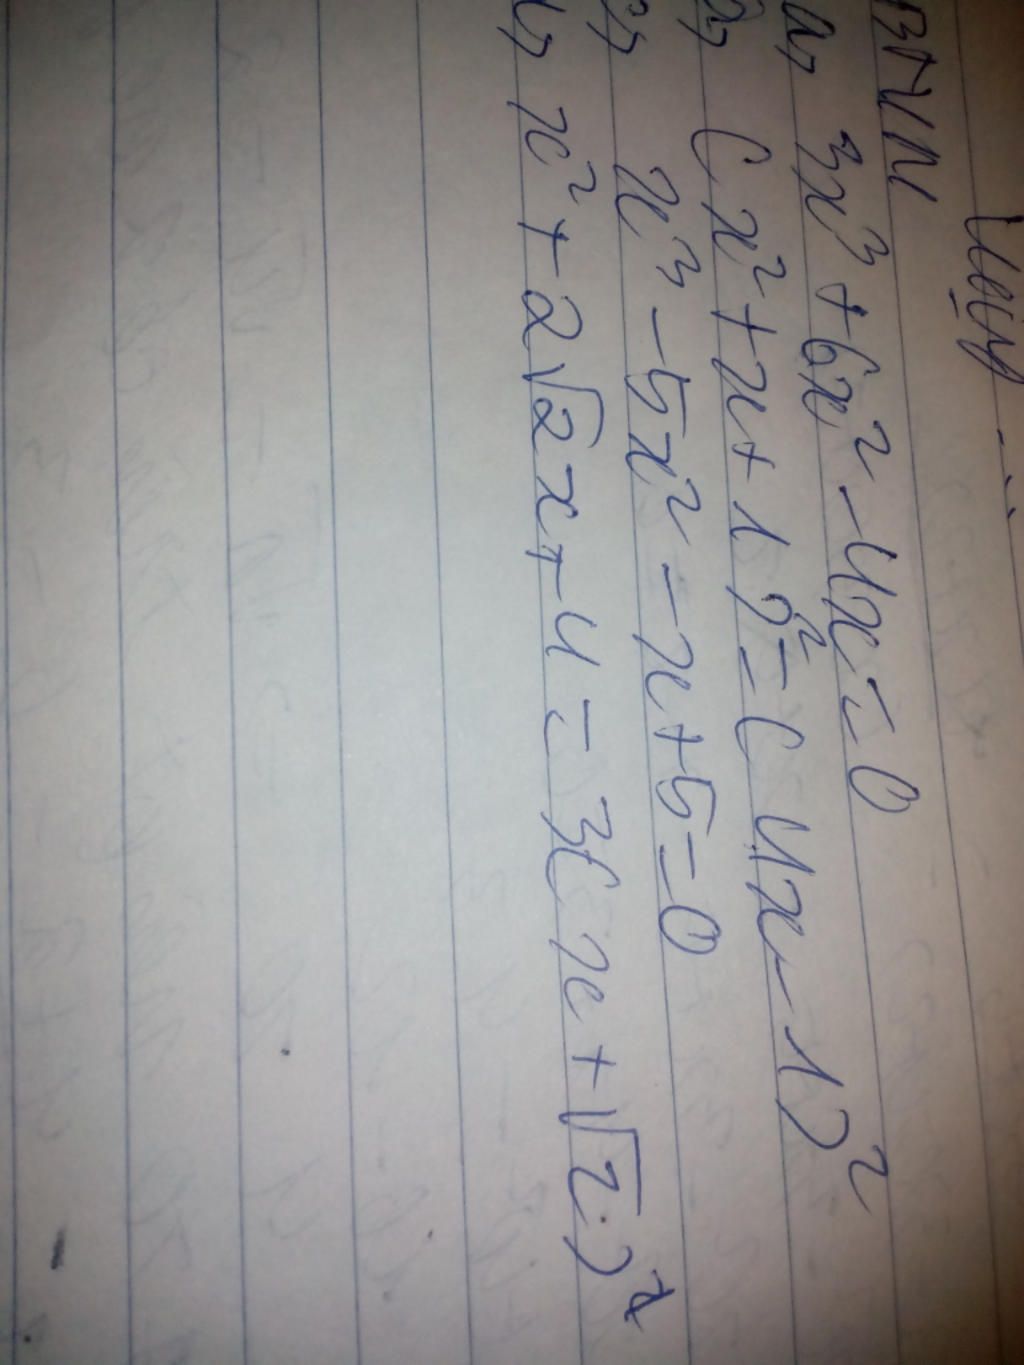 BTVN
a, 3x³ + 6x² - 4x = 0
(x² + x + 1)² = (4x - 1)²
c, x³ - 5x² - x + 5 = 0
d, x² + 2√2x + 4 = 3(x + √2)²